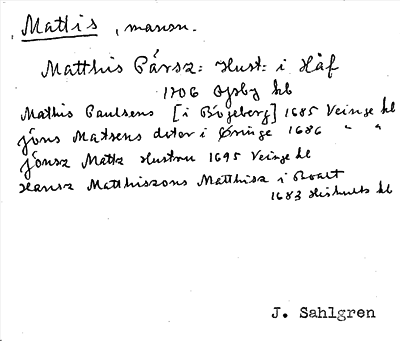 Mattis, mansn.
Matthis Pärsz: Hust: i Håf
1706 Ysby kb
Mathis Paulsens [i Bögeberg] 1685 Veinge kb
Jöns Matsens doter i Öringe 1686 " "
Jönsz Matz Hustru 1695 Veinge kb
Hansz Matthiszons Matthisz i
1683 Hishults kb
J. Sahlgren